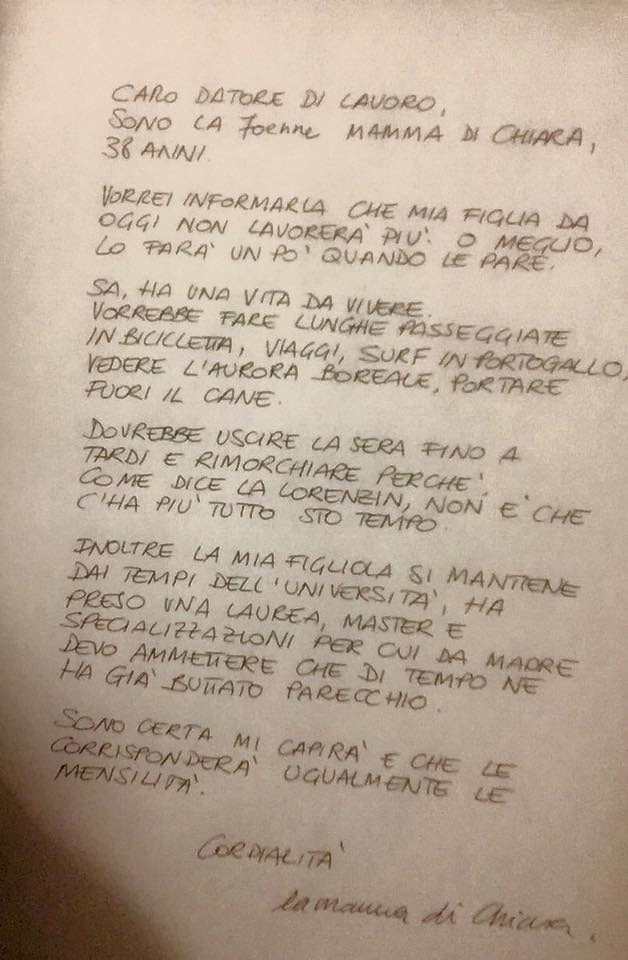 CARO DATORE DI LAVORO,
SONO LA MAMMA DI CHIARA,
38 ANNI.
VORREI INFORMARLA CHE MIA FIGLIA DA
OGGI NON LAVORERA' PIU'. O MEGLIO,
LO FARA' UN PO' QUANDO LE PARE.
SA, HA UNA VITA DA VIVERE.
VORREBBE FARE LUNGHE PASSEGGIATE
IN BICICLETTA, VIAGGI, SURF IN PORTOGALLO,
VEDERE L'AURORA BOREALE, PORTARE
FUORI IL CANE.
DOVREBBE USCIRE LA SERA FINO A
TARDI E RIMORCHIARE PERCHE',
COME DICE LA LORENZIN, NON E' CHE
C'HA PIU' TUTTO STO TEMPO.
INOLTRE LA MIA FIGLIOLA SI MANTIENE
DAI TEMPI DELL'UNIVERSITA', HA
PRESO UNA LAUREA, MASTER E
SPECIALIZZAZIONI PER CUI DA MADRE
DEVO AMMETTERE CHE DI TEMPO NE
HA GIA' BUTTATO PARECCHIO.
SONO CERTA MI CAPIRA' E CHE LE
CORRISPONDERA' UGUALMENTE LE
MENSILITA'.
CORDIALITA'
la mamma di Chiara.